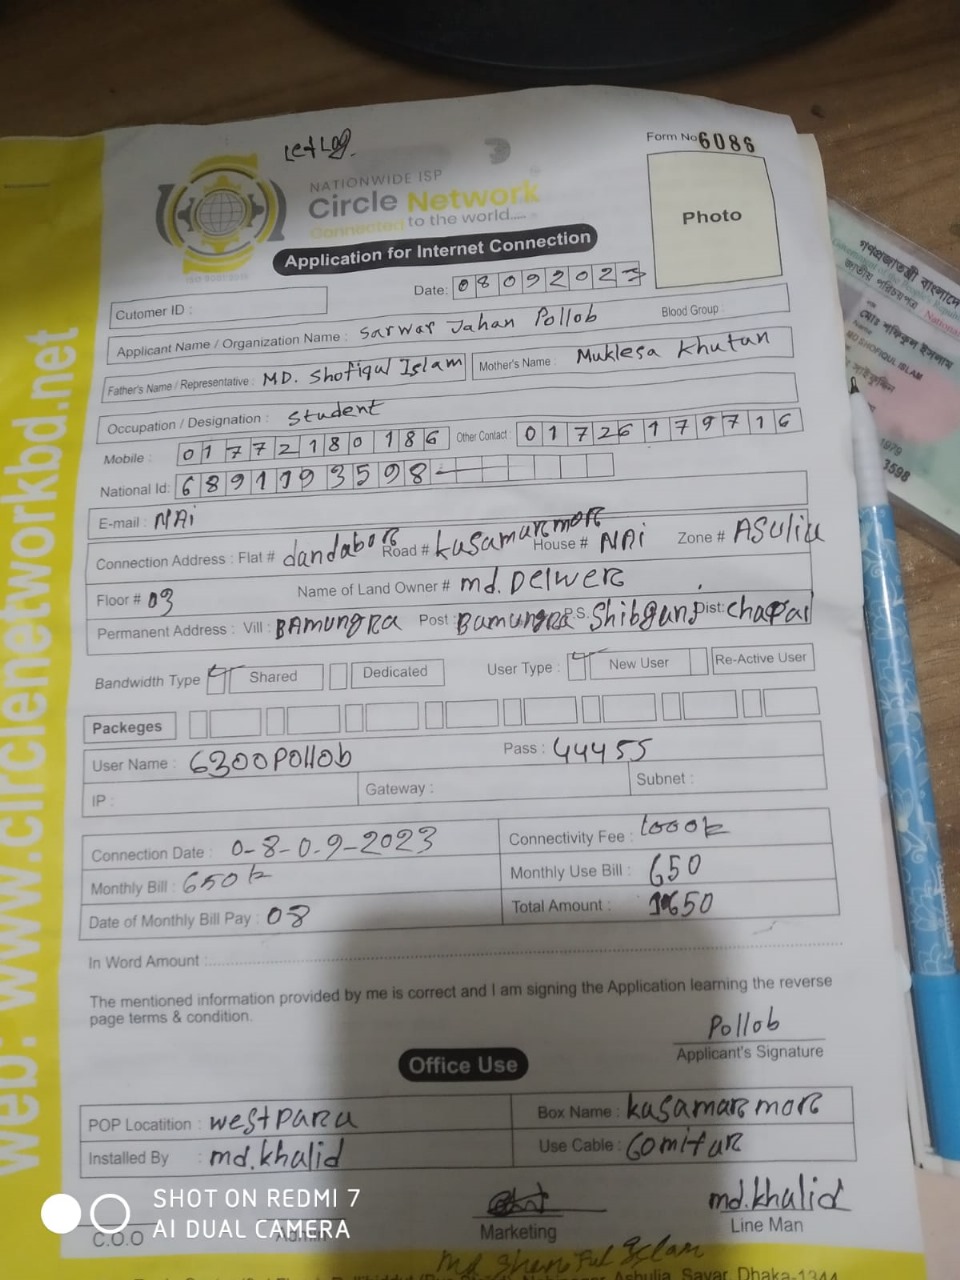 Form No 6086
NATIONWIDE ISP
Circle Network
Connected to the world.....
ISO 9001:2015
Application for Internet Connection
Photo
Date: 0 8 0 9 2 0 2 3
Cutomer ID :
Applicant Name / Organization Name : Sarwar Jahan Pollob Blood Group :
Father's Name / Representative : MD. Shofiqul Islam Mother's Name : Muklesa Khutun
Occupation / Designation : Student
Mobile : 0 1 7 7 2 1 8 0 1 8 6 Other Contact : 0 1 7 2 6 1 7 9 7 1 6
National Id: 6 8 9 1 1 9 3 5 9 8
E-mail : NAi
Connection Address : Flat # dandabore Road # kusamur more House # NAi Zone # ASuliu
Floor # 03 Name of Land Owner # md. Delwer
Permanent Address : Vill : BAmungRA Post : Bamungra P.S: Shibgunj Dist: Chapai
Bandwidth Type Shared Dedicated User Type : New User Re-Active User
Packeges
User Name : 6300Pollob Pass : 44455
IP : Gateway : Subnet :
Connection Date : 0-8-0.9-2023 Connectivity Fee : 1000k
Monthly Bill : 650k Monthly Use Bill : 650
Date of Monthly Bill Pay : 08 Total Amount : 1650
In Word Amount :
The mentioned information provided by me is correct and I am signing the Application learning the reverse
page terms & condition.
Pollob
Applicant's Signature
Office Use
POP Locatition : westpara Box Name : kusamar more
Installed By : md.khalid Use Cable : 60mitar
md.khalid
C.O.O Admin Marketing Line Man
Ashulia, Savar, Dhaka-1344
web: www.circlenetworkbd.net
গণপ্রজাতন্ত্রী বাংলাদেশ
মোঃ শফিকুল ইসলাম
Name
MD SHOFIQUL ISLAM
1979
3598
SHOT ON REDMI 7
AI DUAL CAMERA